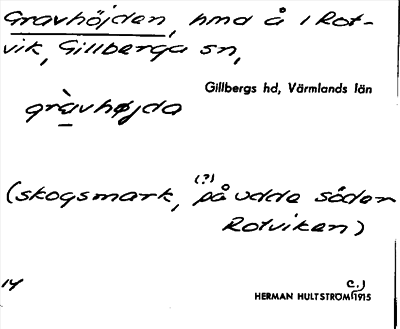 Gravhöjden, hmd å 1 Rot-
vik, Gillberga sn,
Gillbergs hd, Värmlands län
gràvhøjda
(?)
(skogsmark, på udde söder
Rotviken)
14
c.)
HERMAN HULTSTRÖM 1915